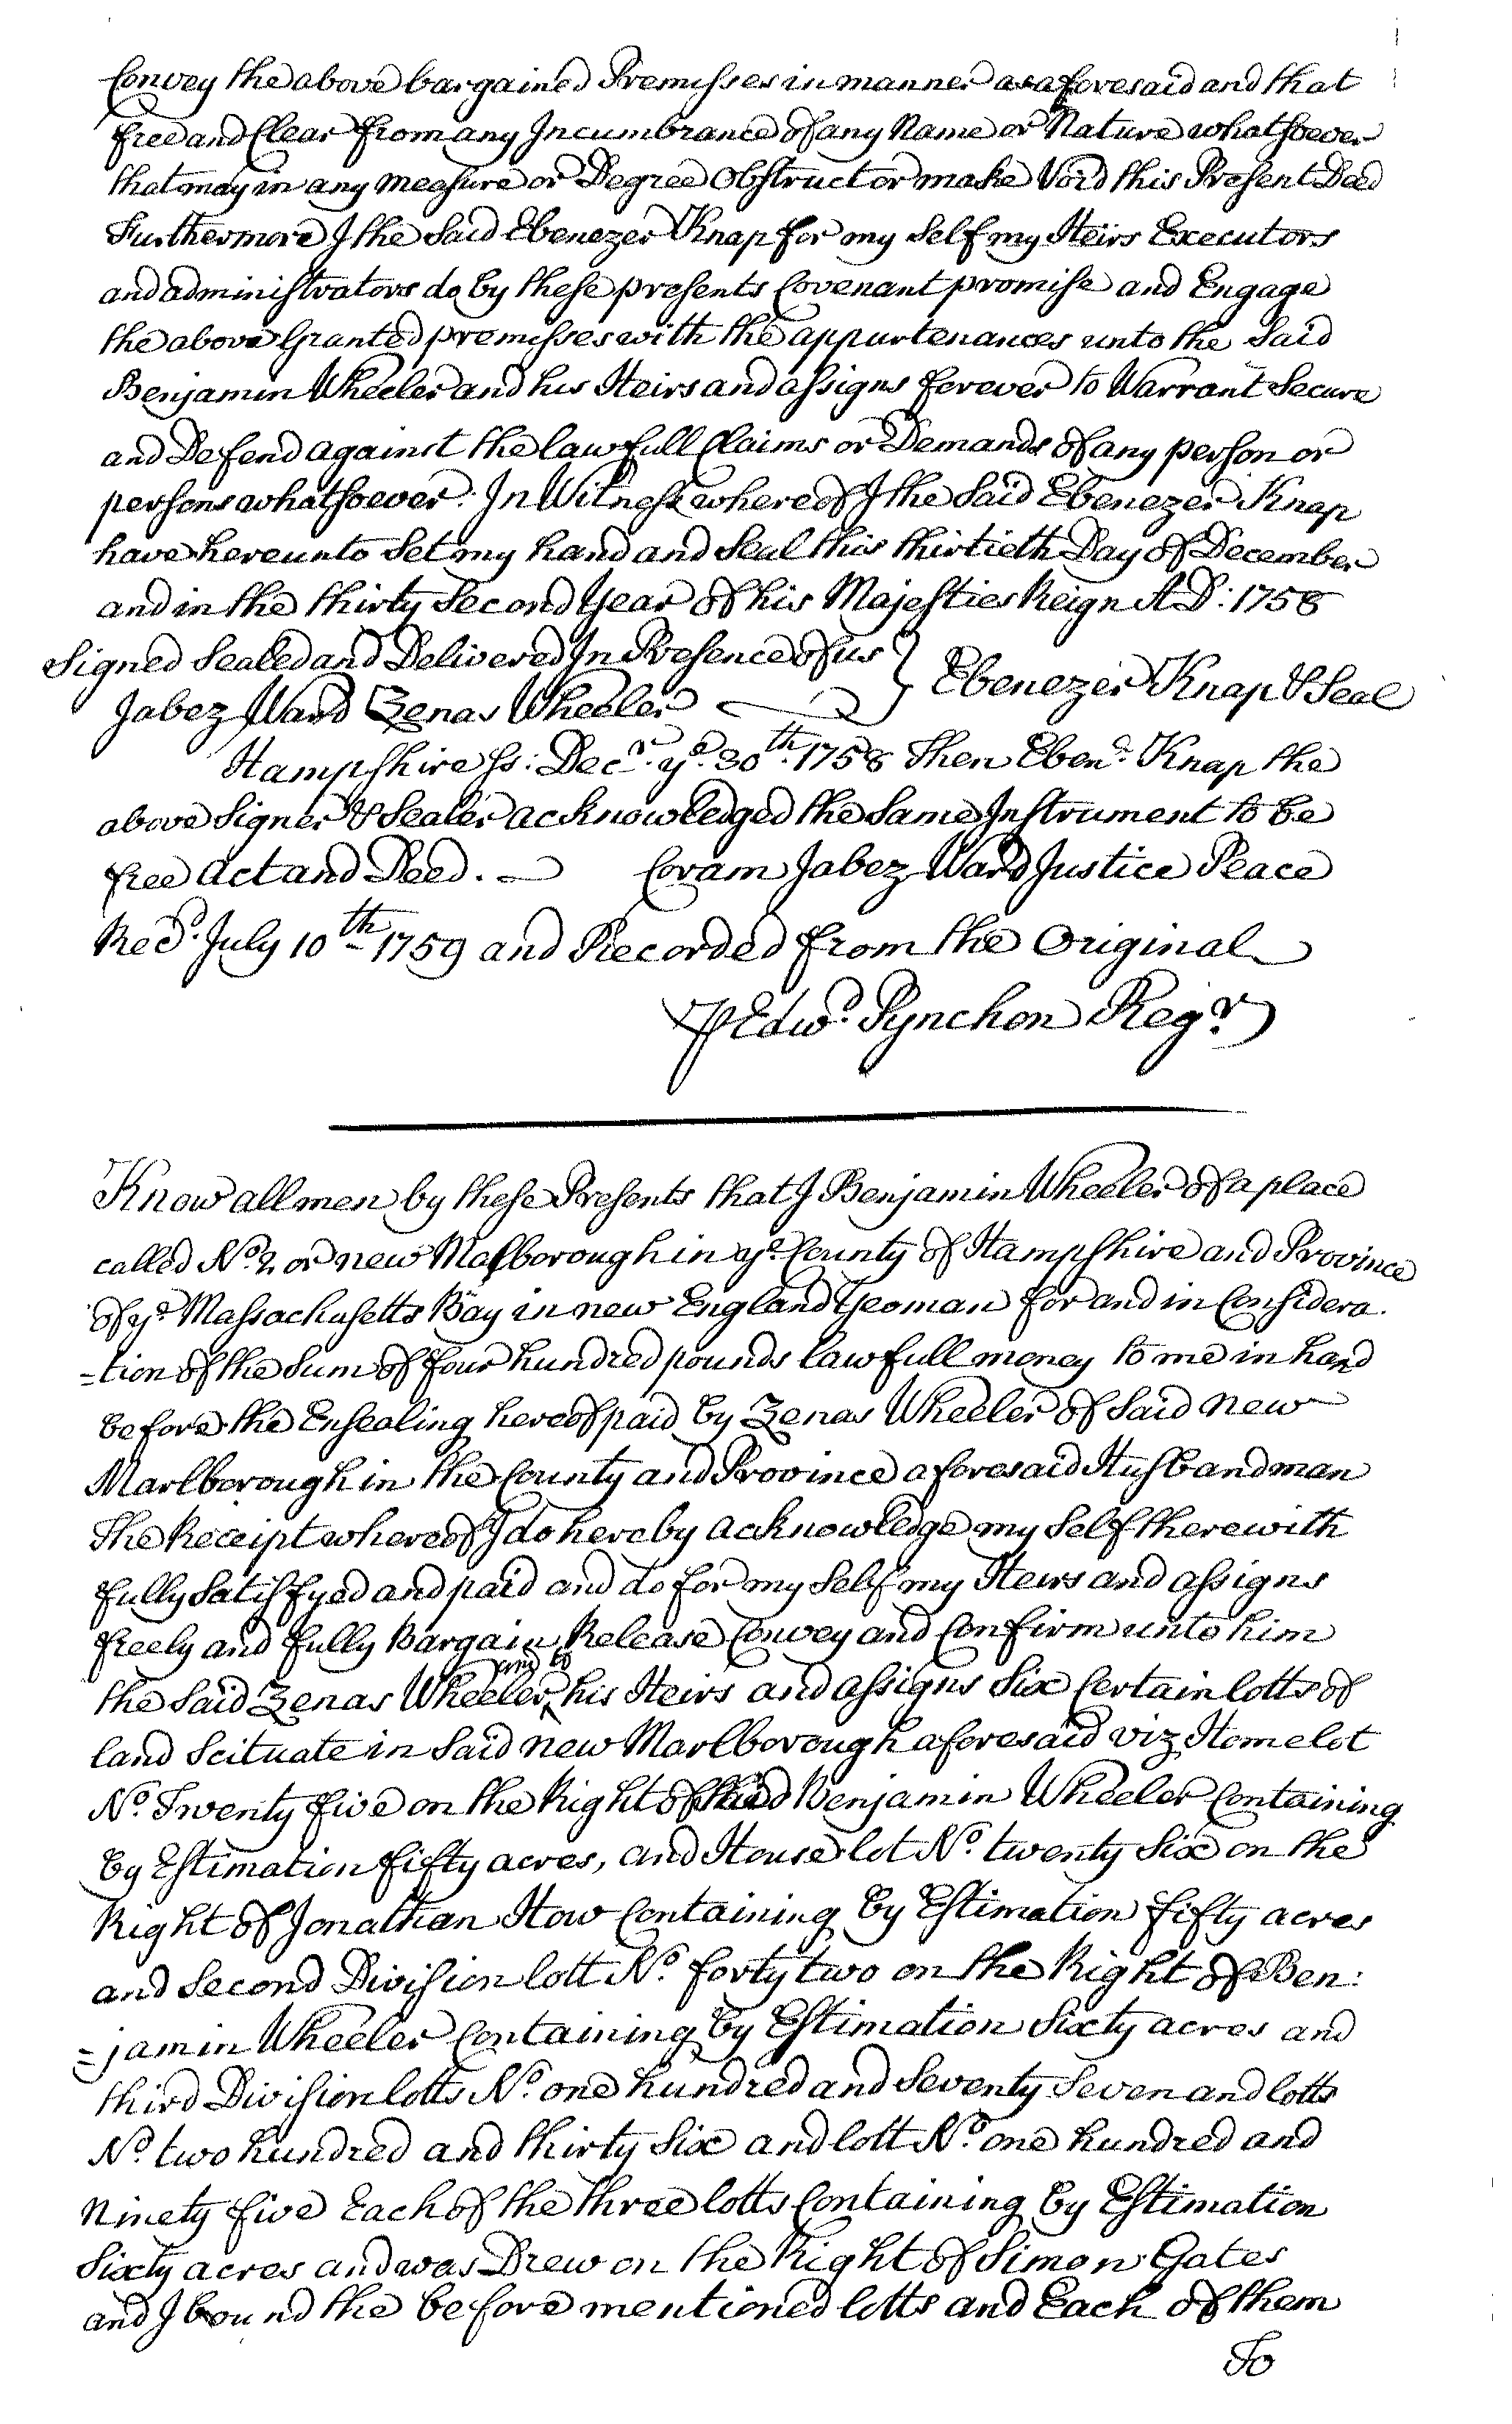 Convey the above bargained Premisses in manner as aforesaid and that
free and Clear from any Incumbrance of any Name or Nature whatsoever
that may in any measure or Degree Obstruct or make Void this Present Deed
Furthermore I the Said Ebenezer Knap for my Self my Heirs Executors
and administrators do by these presents Covenant promise and Engage
the above Granted premisses with the appurtenances unto the Said
Benjamin Wheeler and his Heirs and assigns forever to Warrant Secure
and Defend against the lawfull Claims or Demands of any person or
persons whatsoever. In Witness whereof I the Said Ebenezer Knap
have hereunto Set my hand and Seal this thirtieth Day of December
and in the thirty Second Year of his Majesties Reign A D: 1758
Signed Sealed and Delivered In Presence of us } Ebenezer Knap & Seal
Jabez Ward Zenas Wheeler
Hampshire ss: Decr. ye. 30th. 1758 Then Ebenr. Knap the
above Signer & Sealer acknowledged the Same Instrument to be
free Act and Deed. — Coram Jabez Ward Justice Peace
Recd. July 10th 1759 and Recorded from the Original
℔ Edwd. Pynchon Regr.
Know all men by these Presents that I Benjamin Wheeler of a place
called No. 2 or new Malborough in ye. County of Hampshire and Province
of ye. Massachusetts Bay in new England Yeoman for and in Considera.
=tion of the Sum of four hundred pounds lawfull money to me in hand
before the Ensealing hereof paid by Zenas Wheeler of Said new
Marlborough in the County and Province aforesaid Husbandman
The Receipt whereof I do hereby acknowledge my Self therewith
fully Satisfyed and paid and do for my Self my Heirs and assigns
freely and fully Bargain Release Convey and Confirm unto him
the Said Zenas Wheeler ^and to his Heirs and assigns Six Certain lotts of
land Scituate in Said new Marlborough aforesaid viz Home lot
No. Twenty five on the Right of Said Benjamin Wheeler Containing
by Estimation fifty acres, and House lot No. twenty Six on the
Right of Jonathan How Containing by Estimation fifty acres
and Second Division lott No. forty two on the Right of Ben:
=jamin Wheeler Containing by Estimation Sixty acres and
third Division lotts No. one hundred and Seventy Seven and lotts
No. two hundred and thirty Six and lott No. one hundred and
Ninety five Each of the three lotts Containing by Estimation
Sixty acres and was Drew on the Right of Simon Gates
and I bound the before mentioned lotts and Each of them
To